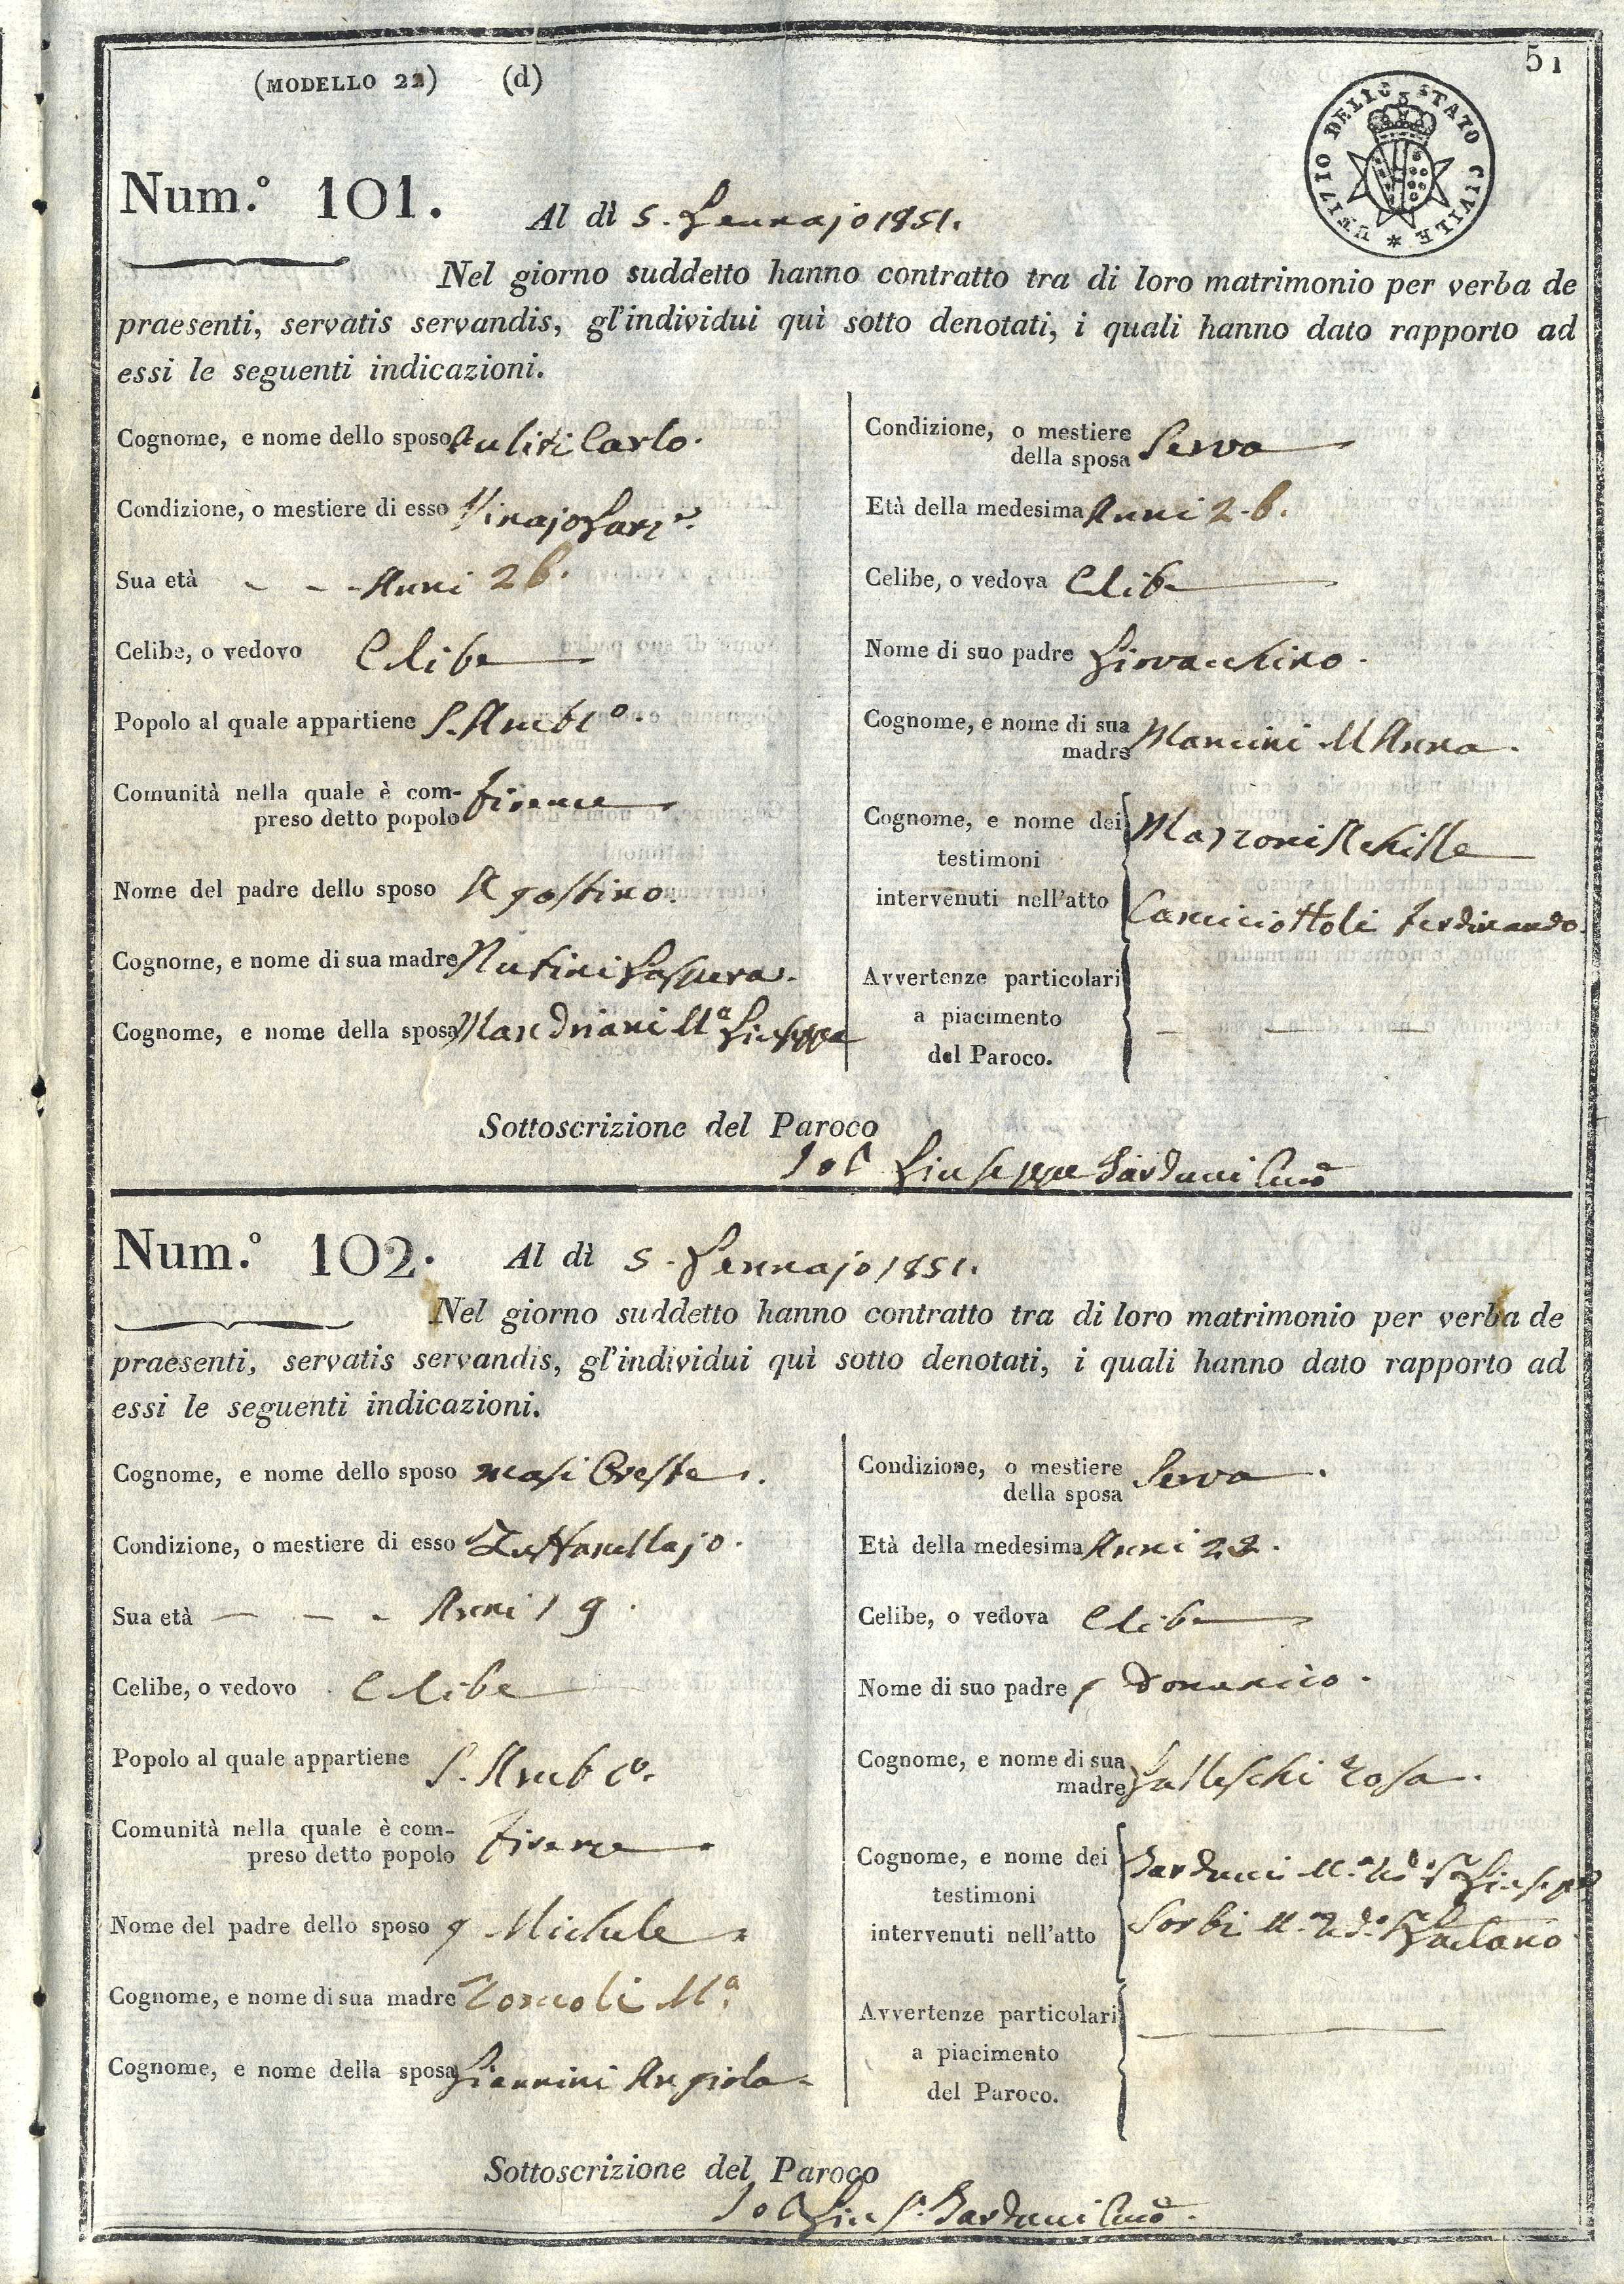 51
(MODELLO 22) (d)
UFIZIO DELLO STATO CIVILE
Num.º 101.
Al dì 5. Gennajo 1851.
Nel giorno suddetto hanno contratto tra di loro matrimonio per verba de
praesenti, servatis servandis, gl'individui quì sotto denotati, i quali hanno dato rapporto ad
essi le seguenti indicazioni.
Cognome, e nome dello sposo Carlo.
Condizione, o mestiere di esso Vinajo
Sua età - - - Anni 26.
Celibe, o vedovo Celibe
Popolo al quale appartiene S. Ambº.
Comunità nella quale è com-
preso detto popolo Firenze
Nome del padre dello sposo Agostino.
Cognome, e nome di sua madre Gaspera.
Cognome, e nome della sposa Mandriani Mª Giuseppa
Condizione, o mestiere
della sposa Serva
Età della medesima Anni 26.
Celibe, o vedova Celibe
Nome di suo padre Giovacchino.
Cognome, e nome di sua
madre Mancini MAnna.
Cognome, e nome dei
testimoni
intervenuti nell'atto
Mazzoni Achille
Camiciottoli Ferdinando.
Avvertenze particolari
a piacimento
del Paroco.
Sottoscrizione del Paroco
Giuseppe Barducci Curº
Num.º 102.
Al dì 5. Gennajo 1851.
Nel giorno suddetto hanno contratto tra di loro matrimonio per verba de
praesenti, servatis servandis, gl'individui quì sotto denotati, i quali hanno dato rapporto ad
essi le seguenti indicazioni.
Cognome, e nome dello sposo Masi Oreste.
Condizione, o mestiere di esso Zolfanellajo.
Sua età - - - Anni 19.
Celibe, o vedovo Celibe
Popolo al quale appartiene S. Ambº.
Comunità nella quale è com-
preso detto popolo Firenze
Nome del padre dello sposo q Michele
Cognome, e nome di sua madre Mª
Cognome, e nome della sposa Giannini Angiola.
Condizione, o mestiere
della sposa Serva.
Età della medesima Anni 22.
Celibe, o vedova Celibe
Nome di suo padre Domenico.
Cognome, e nome di sua
madre Galleschi Rosa.
Cognome, e nome dei
testimoni
intervenuti nell'atto
Barducci
Sorbi Gaetano
Avvertenze particolari
a piacimento
del Paroco.
Sottoscrizione del Paroco
Barducci Curº.